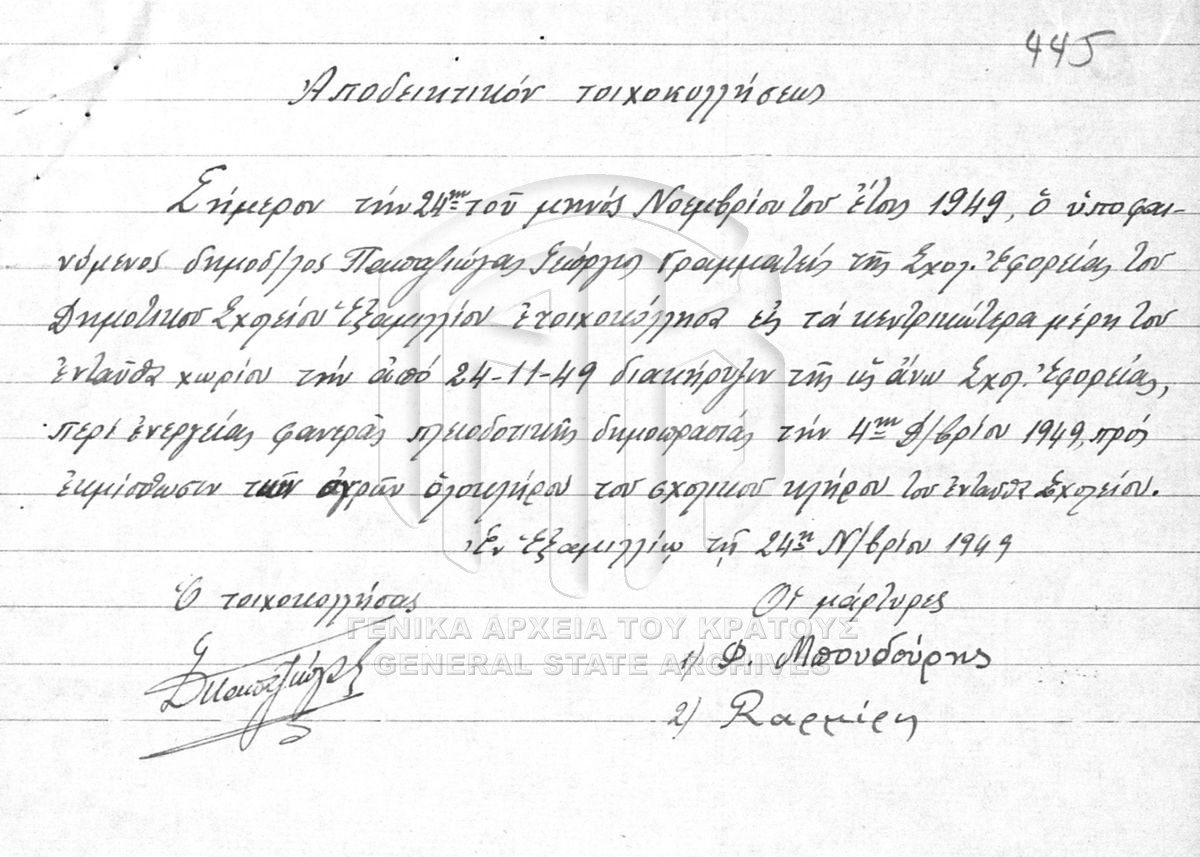 445
Ἀποδεικτικόν τοιχοκολλήσεως
Σήμερον τήν 24ην τοῦ μηνός Νοεμβρίου του ἔτους 1949, ὁ ὑποφαι-
νόμενος δημοδ/λος Γεώργιος Γραμματεύς τῆς Σχολ. Ἐφορείας του
Δημοτικου Σχολείου Ἐξαμιλλίου ἐτοιχοκόλλησα εἰς τά κεντρικώτερα μέρη του
ἐνταῦθα χωρίου τήν ἀπό 24-11-49 διακήρυξιν τῆς ὡς ἄνω Σχολ. Ἐφορείας,
περί ἐνεργείας φανερᾶς πλειοδοτικῆς δημοπρασίας τήν 4ην Δ/βρίου 1949, πρός
ἐκμίσθωσιν τῶν ἀγρῶν ὁλοκλήρου του σχολικου κλήρου του ἐνταῦθα Σχολείου.
Ἐν Ἐξαμιλλίῳ τῇ 24ῃ Ν/βρίου 1949
Ὁ τοιχοκολλήσας
Οἱ μάρτυρες
ΓΕΝΙΚΑ ΑΡΧΕΙΑ ΤΟΥ ΚΡΑΤΟΥΣ
GENERAL STATE ARCHIVES
1) Φ. Μπουδούρης
2)